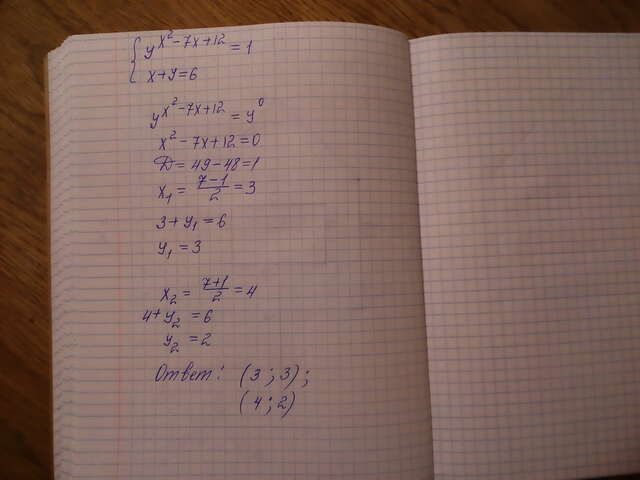 { y^{x²-7x+12} = 1
x+y=6
y^{x²-7x+12} = y⁰
x²-7x+12=0
D = 49-48=1
x₁ = (7-1)/2 = 3
3+y₁ = 6
y₁ = 3
x₂ = (7+1)/2 = 4
4+y₂ = 6
y₂ = 2
Ответ: (3; 3);
(4; 2)